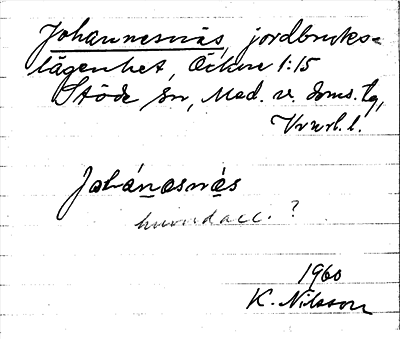 Johannesnäs, jordbruks=
lägenhet, Öckne 1:15
Stöde sn, Med. v. doms. tg,
Vnrl. l.
Johánasnäs
huvudacc. ?
1960
K. Nilsson